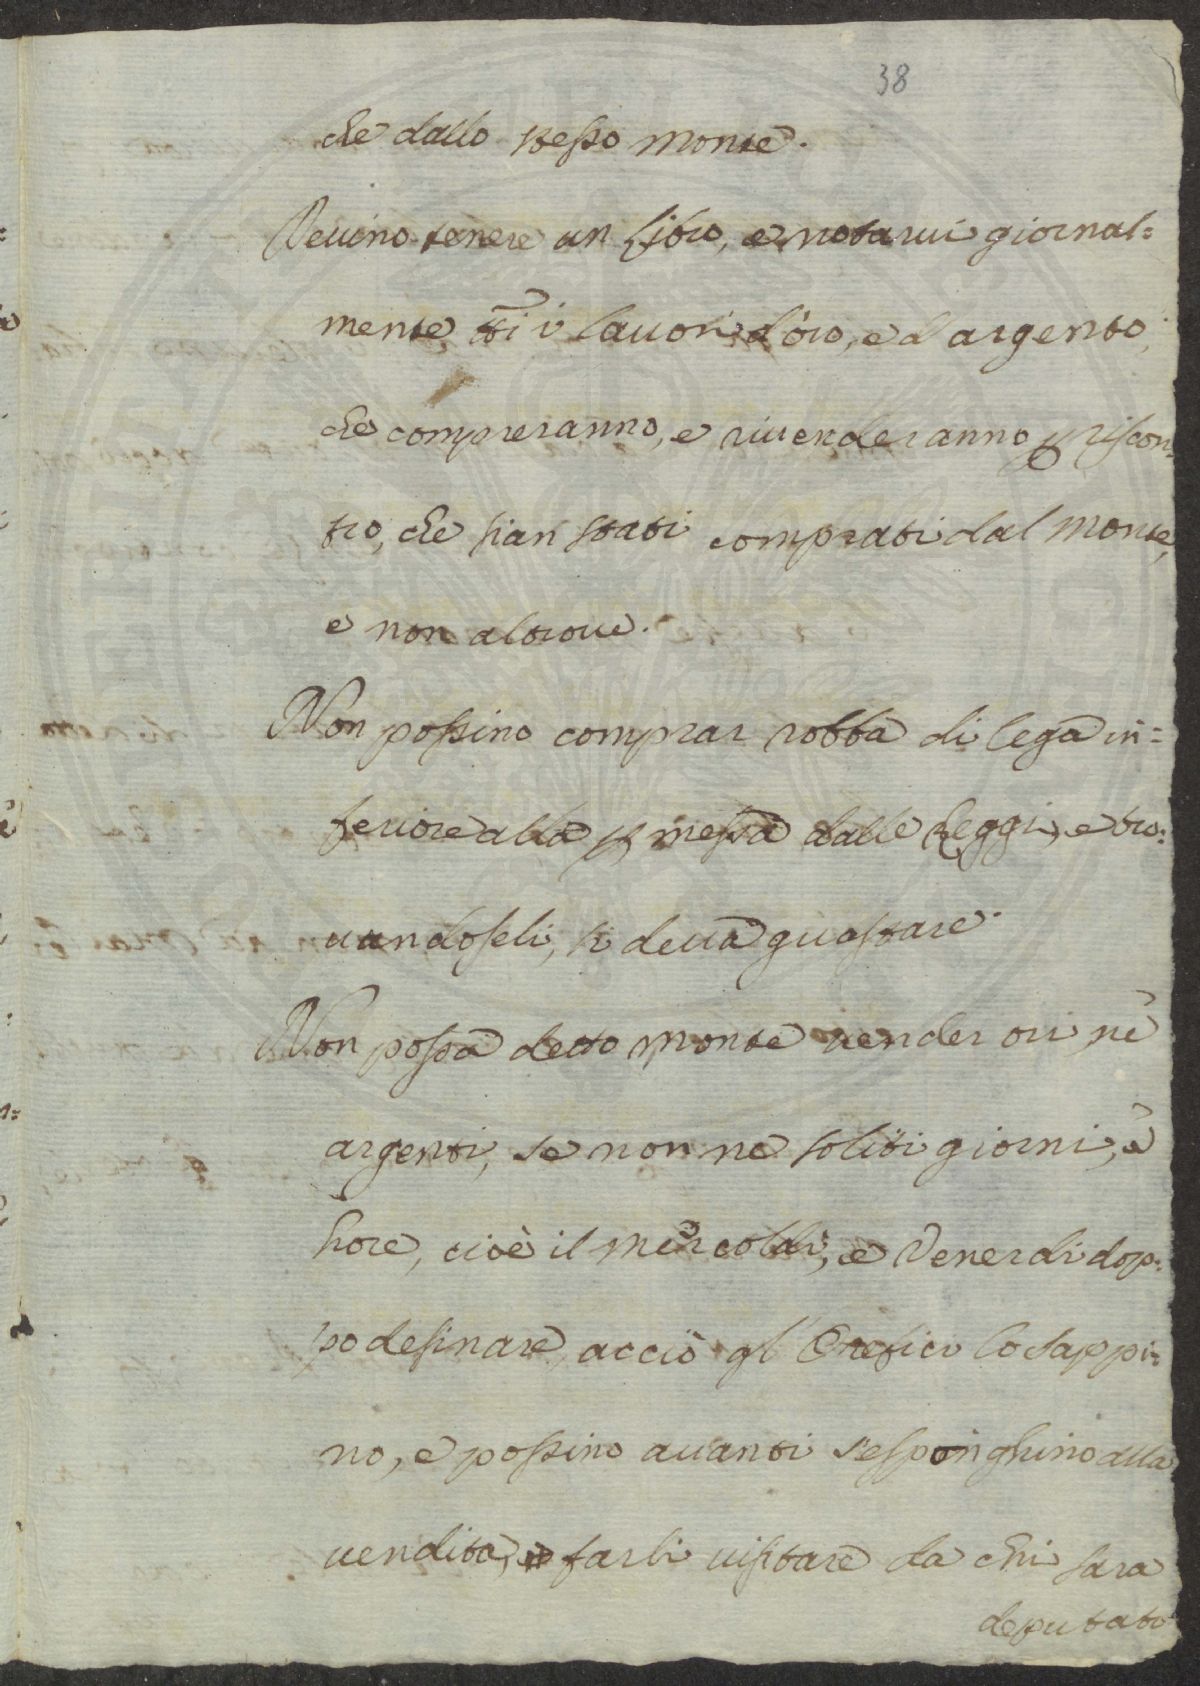 38
che dallo stesso Monte.
Devino tenere un libro, e notarvi giornal=
mente tti i lavori d'oro, e d'argento,
che compreranno, e rivenderanno p riscon=
tro, che sian stati comprati dal Monte,
e non altrove.
Non possino comprar robba di lega in=
feriore alla p messa dalle Leggi, e tro=
vandoseli, si devà guastare.
Non possa detto Monte vender ori nè
argenti, se non ne soliti giorni, è
hore, cioè il Mercoldì, e Venerdi dop=
po desinare, acciò gl' Orefici lo sappi=
no, e possino avanti s'esponghino alla
vendita, farli visitare da chi sara
deputato